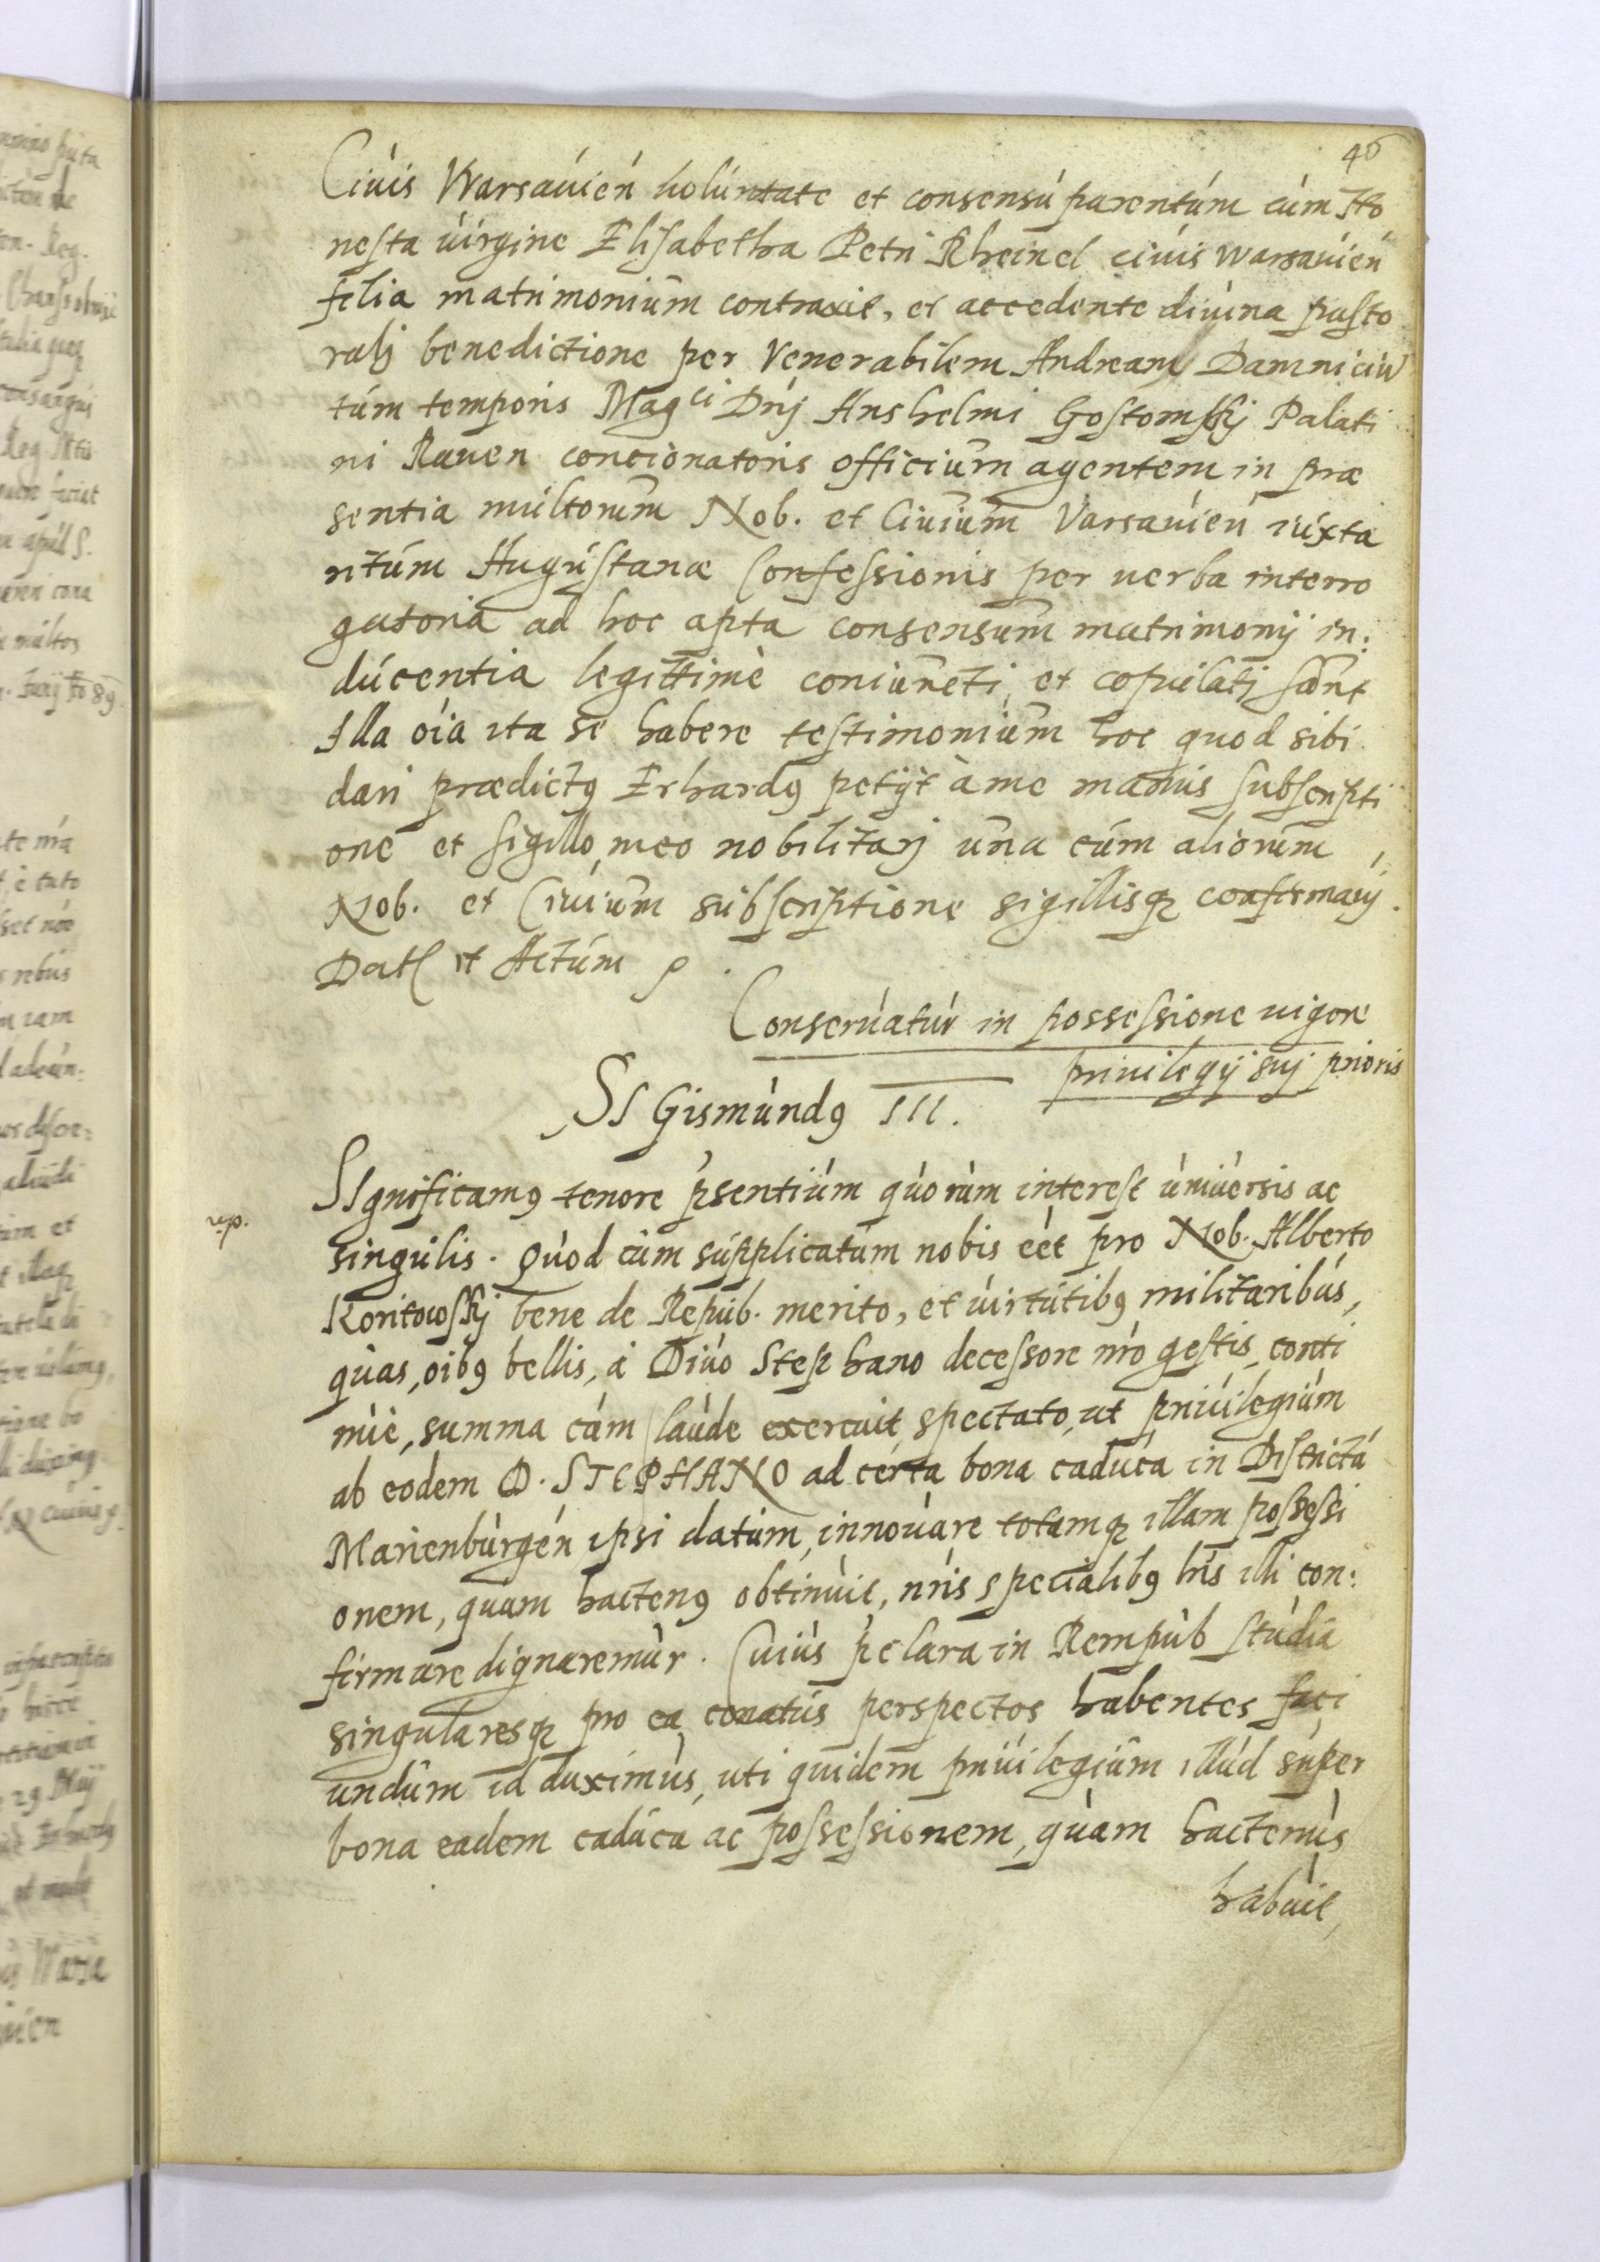 46
Ciuis Warsauień uoluntate et consensu parentum cum Ho
nesta uirgine Elisabetha Petri Rheinel ciuis Warsauień
felia matrimonium contraxit, et accedente diuina pasto
ralj benedictione per Venerabilem Andream Damniciu
tum temporis Magci Dnj Anshelmi Gostomskj Palati
ni Rauen concionatoris officium agentem in præ
sentia multorum Nob. et Ciuium Varsauień iuxta
ritum Augustanæ Confessionis per uerba interro
gatoria ad hoc apta consensum matrimonij in:
ducentia legittimè coniuncti, et copulatj sunt
Illa oīa ita se habere testimonium hoc quod sibi
dari prædictꝰ Erhardꝰ petijt à me manus subscripti
one et sigillo meo nobilitarj una cum aliorum
Nob. et Ciuium subscriptione sigillisqꝫ confirmauj.
Datͫ et Actum ꝑ.
Conseruatur in possessione uigore
priuilegij suj prioris
SIGismundꝰ III.
SIgnificamꝰ tenore p̄sentium quorum interest uniuersis ac
rip.
singulis. Quod cum supplicatum nobis eēt pro Nob. Alberto
Koritowskj bene de Repub. merito, et uirtutibꝰ militaribus,
quas, oībꝰ bellis, à Diuo Stephano decessore nrō gestis, conti
nuè, summa cum laude exercuit, spectato, ut priuilegium
ab eodem D. STEPHANO ad certa bona caduca in Districtu
Marienburgeń ipsi datum, innouare totamqꝫ illam possessi
onem, quam hactenꝰ obtinuit, nr̄is specialibꝰ lrīs illi con:
firmare dignaremur. Cuius p̄clara in Rempub studia
singularesqꝫ pro ea conatus perspectos habentes faci
undum id duximus, uti quidem priuilegium illud super
bona eadem caduca ac possessionem, quam hactenus
habuit,